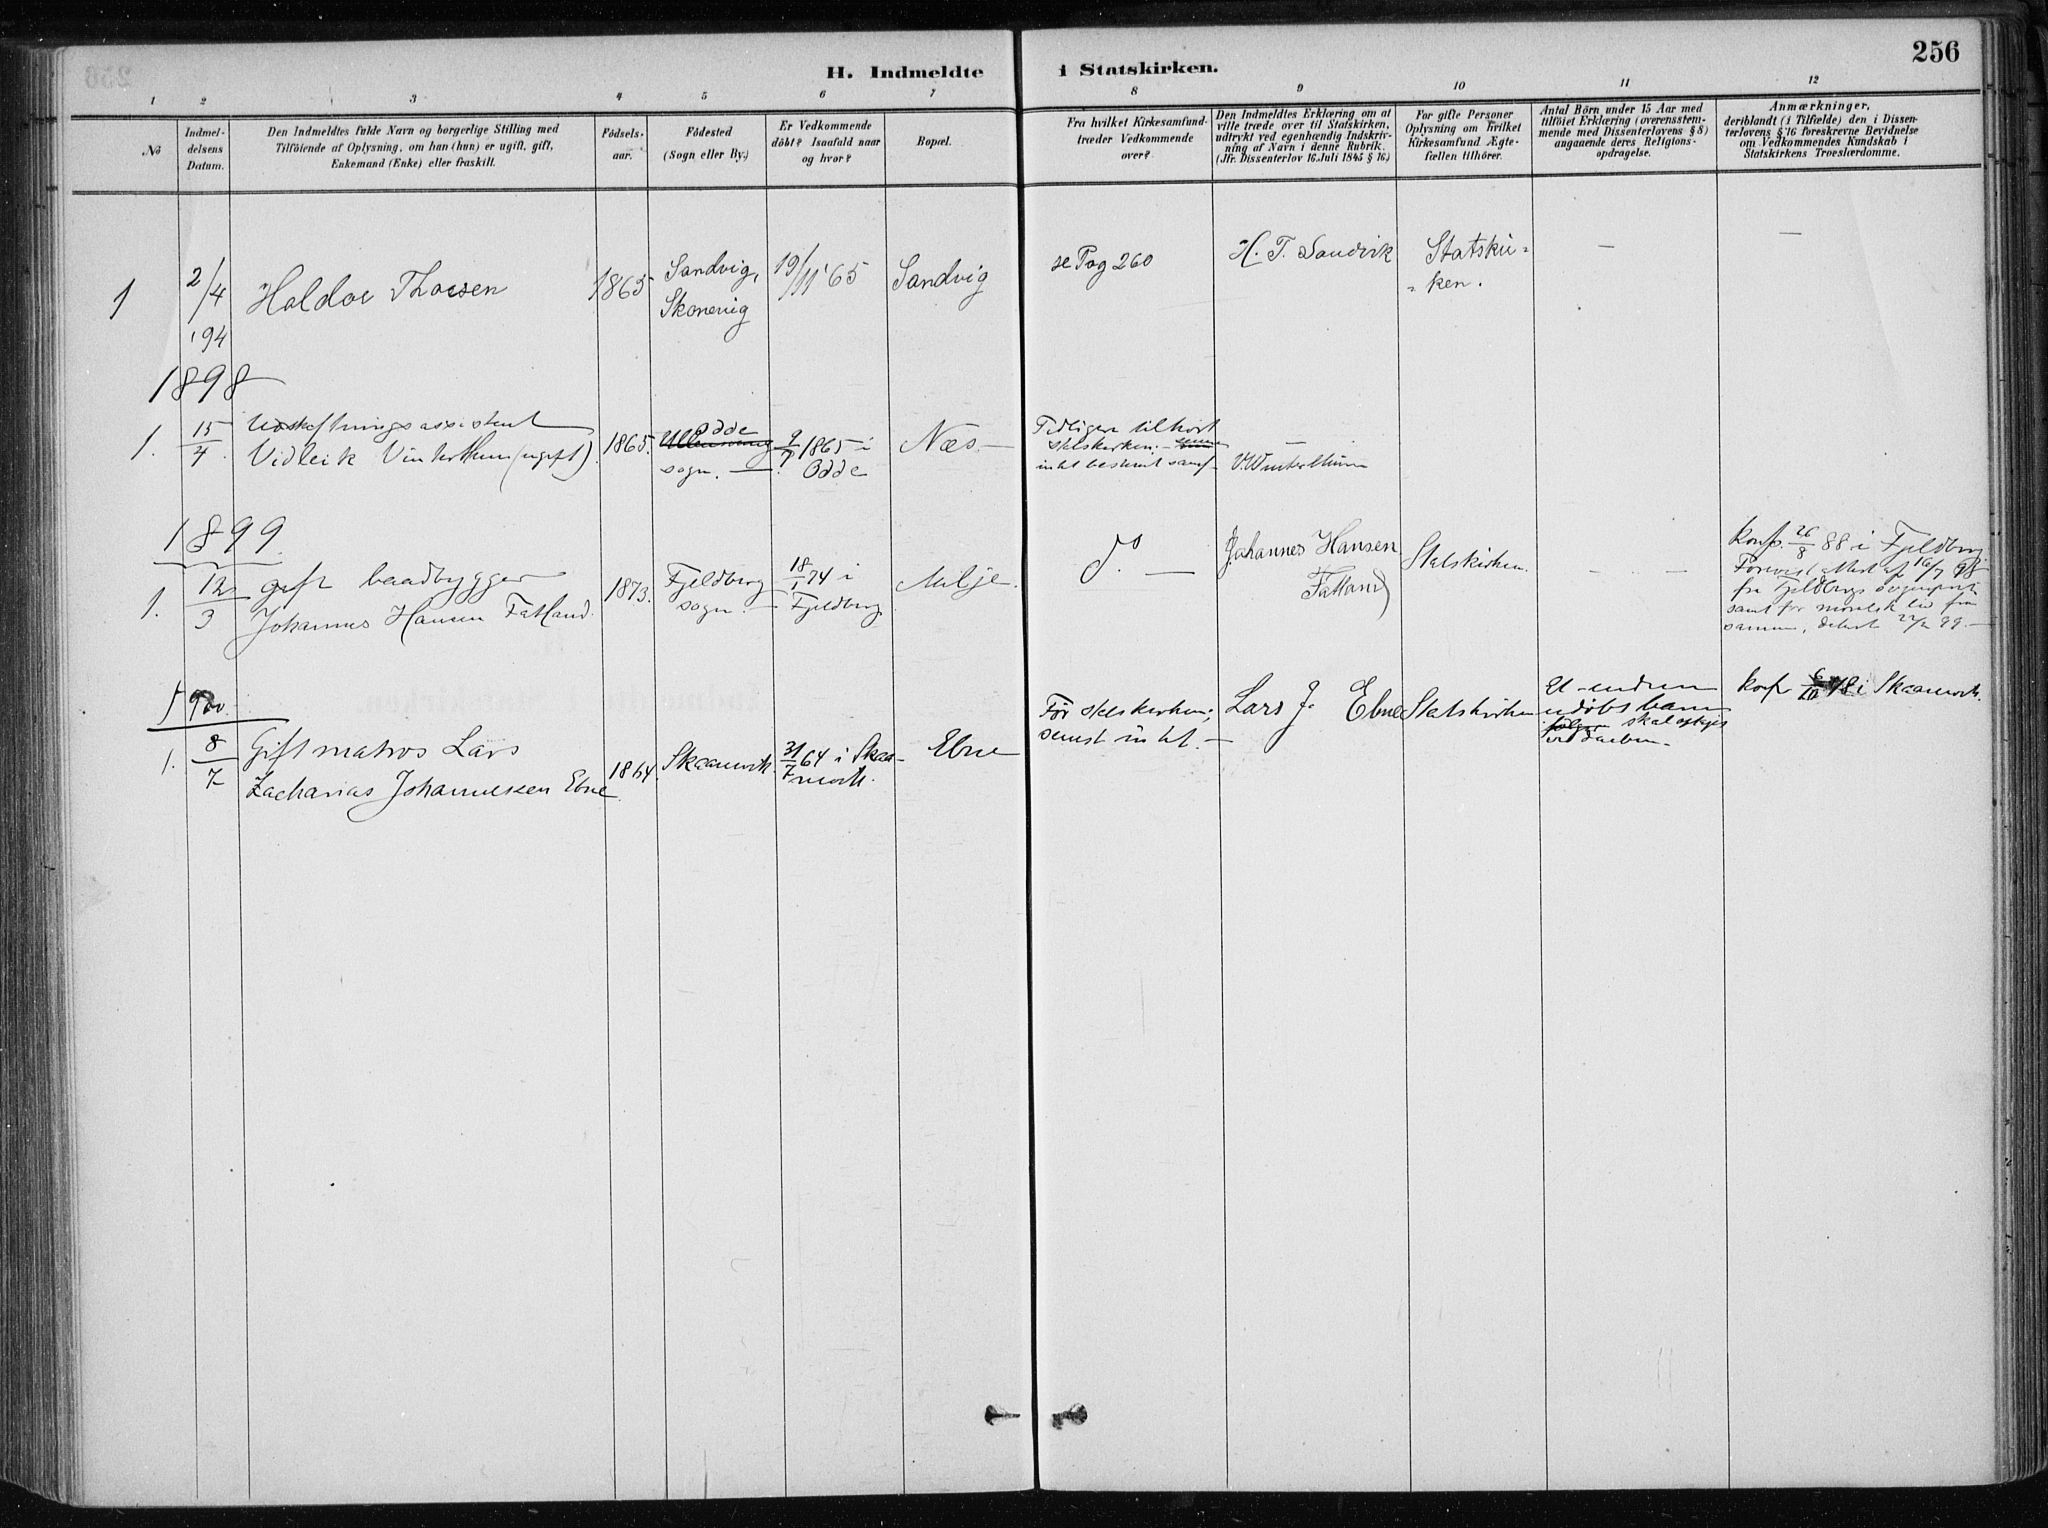 256
H. Indmeldte i Statskirken.
1 2 3 4 5 6 7 8 9 10 11 12
No
Indmel-
delsens
Datum.
Den Indmeldtes fulde Navn og borgerlige Stilling med
Tilföiende af Oplysning, om han (hun) er ugift, gift,
Enkemand (Enke) eller fraskilt.
Födsels-
aar.
Födested
(Sogn eller By.)
Er Vedkommende
döbt? Isaafald naar
og hvor?
Bopæl.
Fra hvilket Kirkesamfund
træder Vedkommende
over?
Den Indmeldtes Erklæring om at
ville træde over til Statskirken,
udtrykt ved egenhændig Indskriv-
ning af Navn i denne Rubrik.
(Jfr. Dissenterlov 16 Juli 1845 § 16)
For gifte Personer
Oplysning om hvilket
Kirkesamfund Ægte-
fællen tilhörer.
Antal Börn under 15 Aar med
tilföiet Erklæring (overensstem-
mende med Dissenterlovens § 8)
angaaende deres Religions-
opdragelse.
Anmærkninger,
deriblandt (i Tilfælde) den i Dissen-
terlovens § 16 foreskrevne Bevidnelse
om Vedkommendes Kundskab i
Statskirkens Troeslærdomme.
1
2/4
'94
Haldor Thorsen
1865
Sandvig,
Skonevig
19/11 '65
Sandvig
se Pag 260
H. T. Sandvik
Statskir=
=ken.
—
—
1898
1.
15/4.
Udskiftningsassistent
Vidleik Vinterthun (ugift).
1865.
Odde
Ullensvang
sogn. —
9/7 1865 i
Odde
Næs —
Tidligere tilhørt
statskirken; — senere
intet bestemt samf—
V. Winterthun
1899
1.
12/3
gift baadbygger
Johannes Hansen Fatland.
1873.
Fjeldberg
sogn. —
18/1 74 i
Fjeldberg
Milje.
do. —
Johannes Hansen
Fatland
Statskirken.
— —
Konf. 26/8 88 i Fjeldberg.
Forevist attest af 16/7 98
fra Fjeldbergs sogneprest
samt for moralsk liv fra
samme, datert 22/2 99. —
1900.
1.
8/7
Gift matros Lars
Zacharias Johannessen Ebne
1864.
Skaanevik.
31/7 64 i Skaa-
nevik.
Ebne
Før statskirken;
senest intet. —
Lars J. Ebne
Statskirken
Et endnu
udøbt barn
konf. 6/10 78 i Skaanevik.